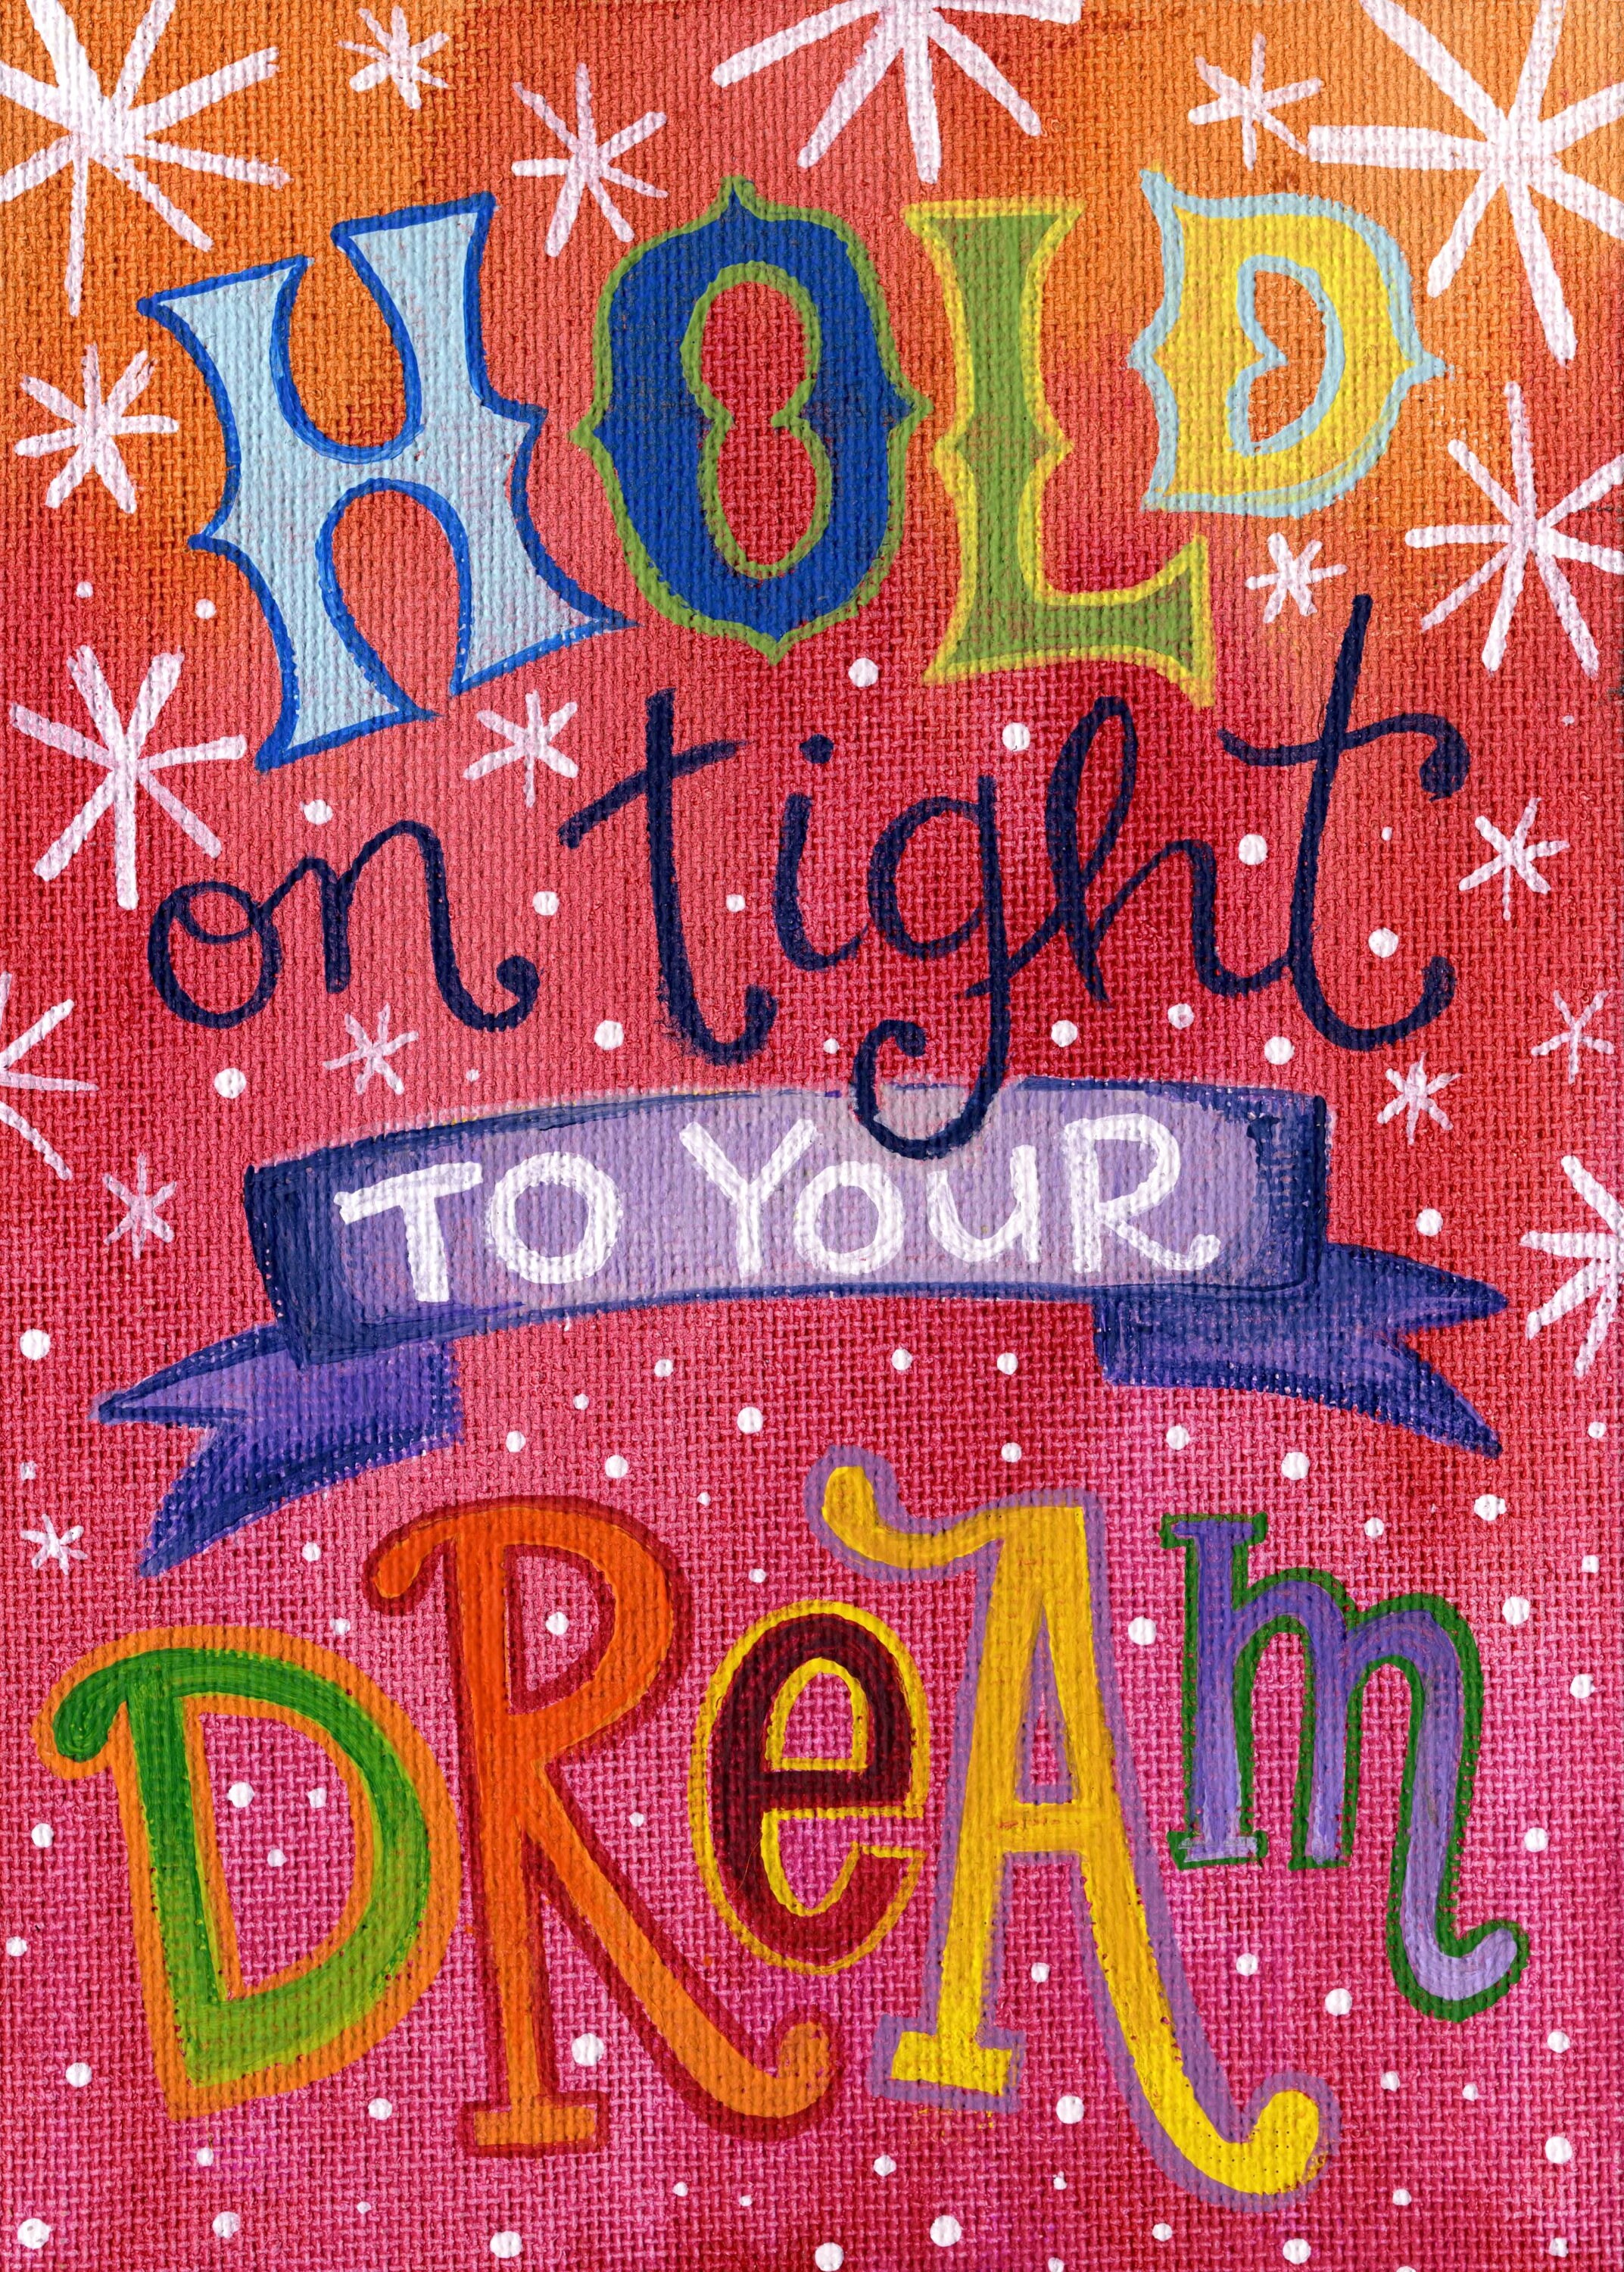 HOLD
on tight
TO YOUR
DReAm